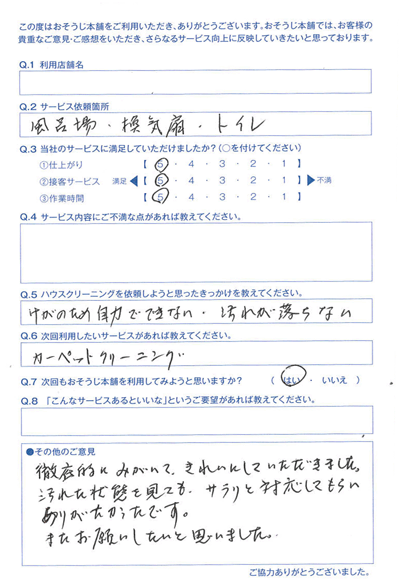 この度はおそうじ本舗をご利用いただき、ありがとうございます。おそうじ本舗では、お客様の
貴重なご意見・ご感想をいただき、さらなるサービス向上に反映していきたいと思っております。
Q.1 利用店舗名
Q.2 サービス依頼箇所
風呂場・換気扇・トイレ
Q.3 当社のサービスに満足していただけましたか?(○を付けてください)
①仕上がり 【 5 ・ 4 ・ 3 ・ 2 ・ 1 】
②接客サービス 満足 ◀【 5 ・ 4 ・ 3 ・ 2 ・ 1 】▶ 不満
③作業時間 【 5 ・ 4 ・ 3 ・ 2 ・ 1 】
Q.4 サービス内容にご不満な点があれば教えてください。
Q.5 ハウスクリーニングを依頼しようと思ったきっかけを教えてください。
けがのため自力でできない・汚れが落ちない
Q.6 次回利用したいサービスがあれば教えてください。
カーペットクリーニング
Q.7 次回もおそうじ本舗を利用してみようと思いますか? ( はい ・ いいえ )
Q.8 「こんなサービスあるといいな」というご要望があれば教えてください。
●その他のご意見
徹底的にみがいて、きれいにしていただきました。
汚れた状態を見ても、サラリと対応してもらい
ありがたかったです。
またお願いしたいと思いました。
ご協力ありがとうございました。